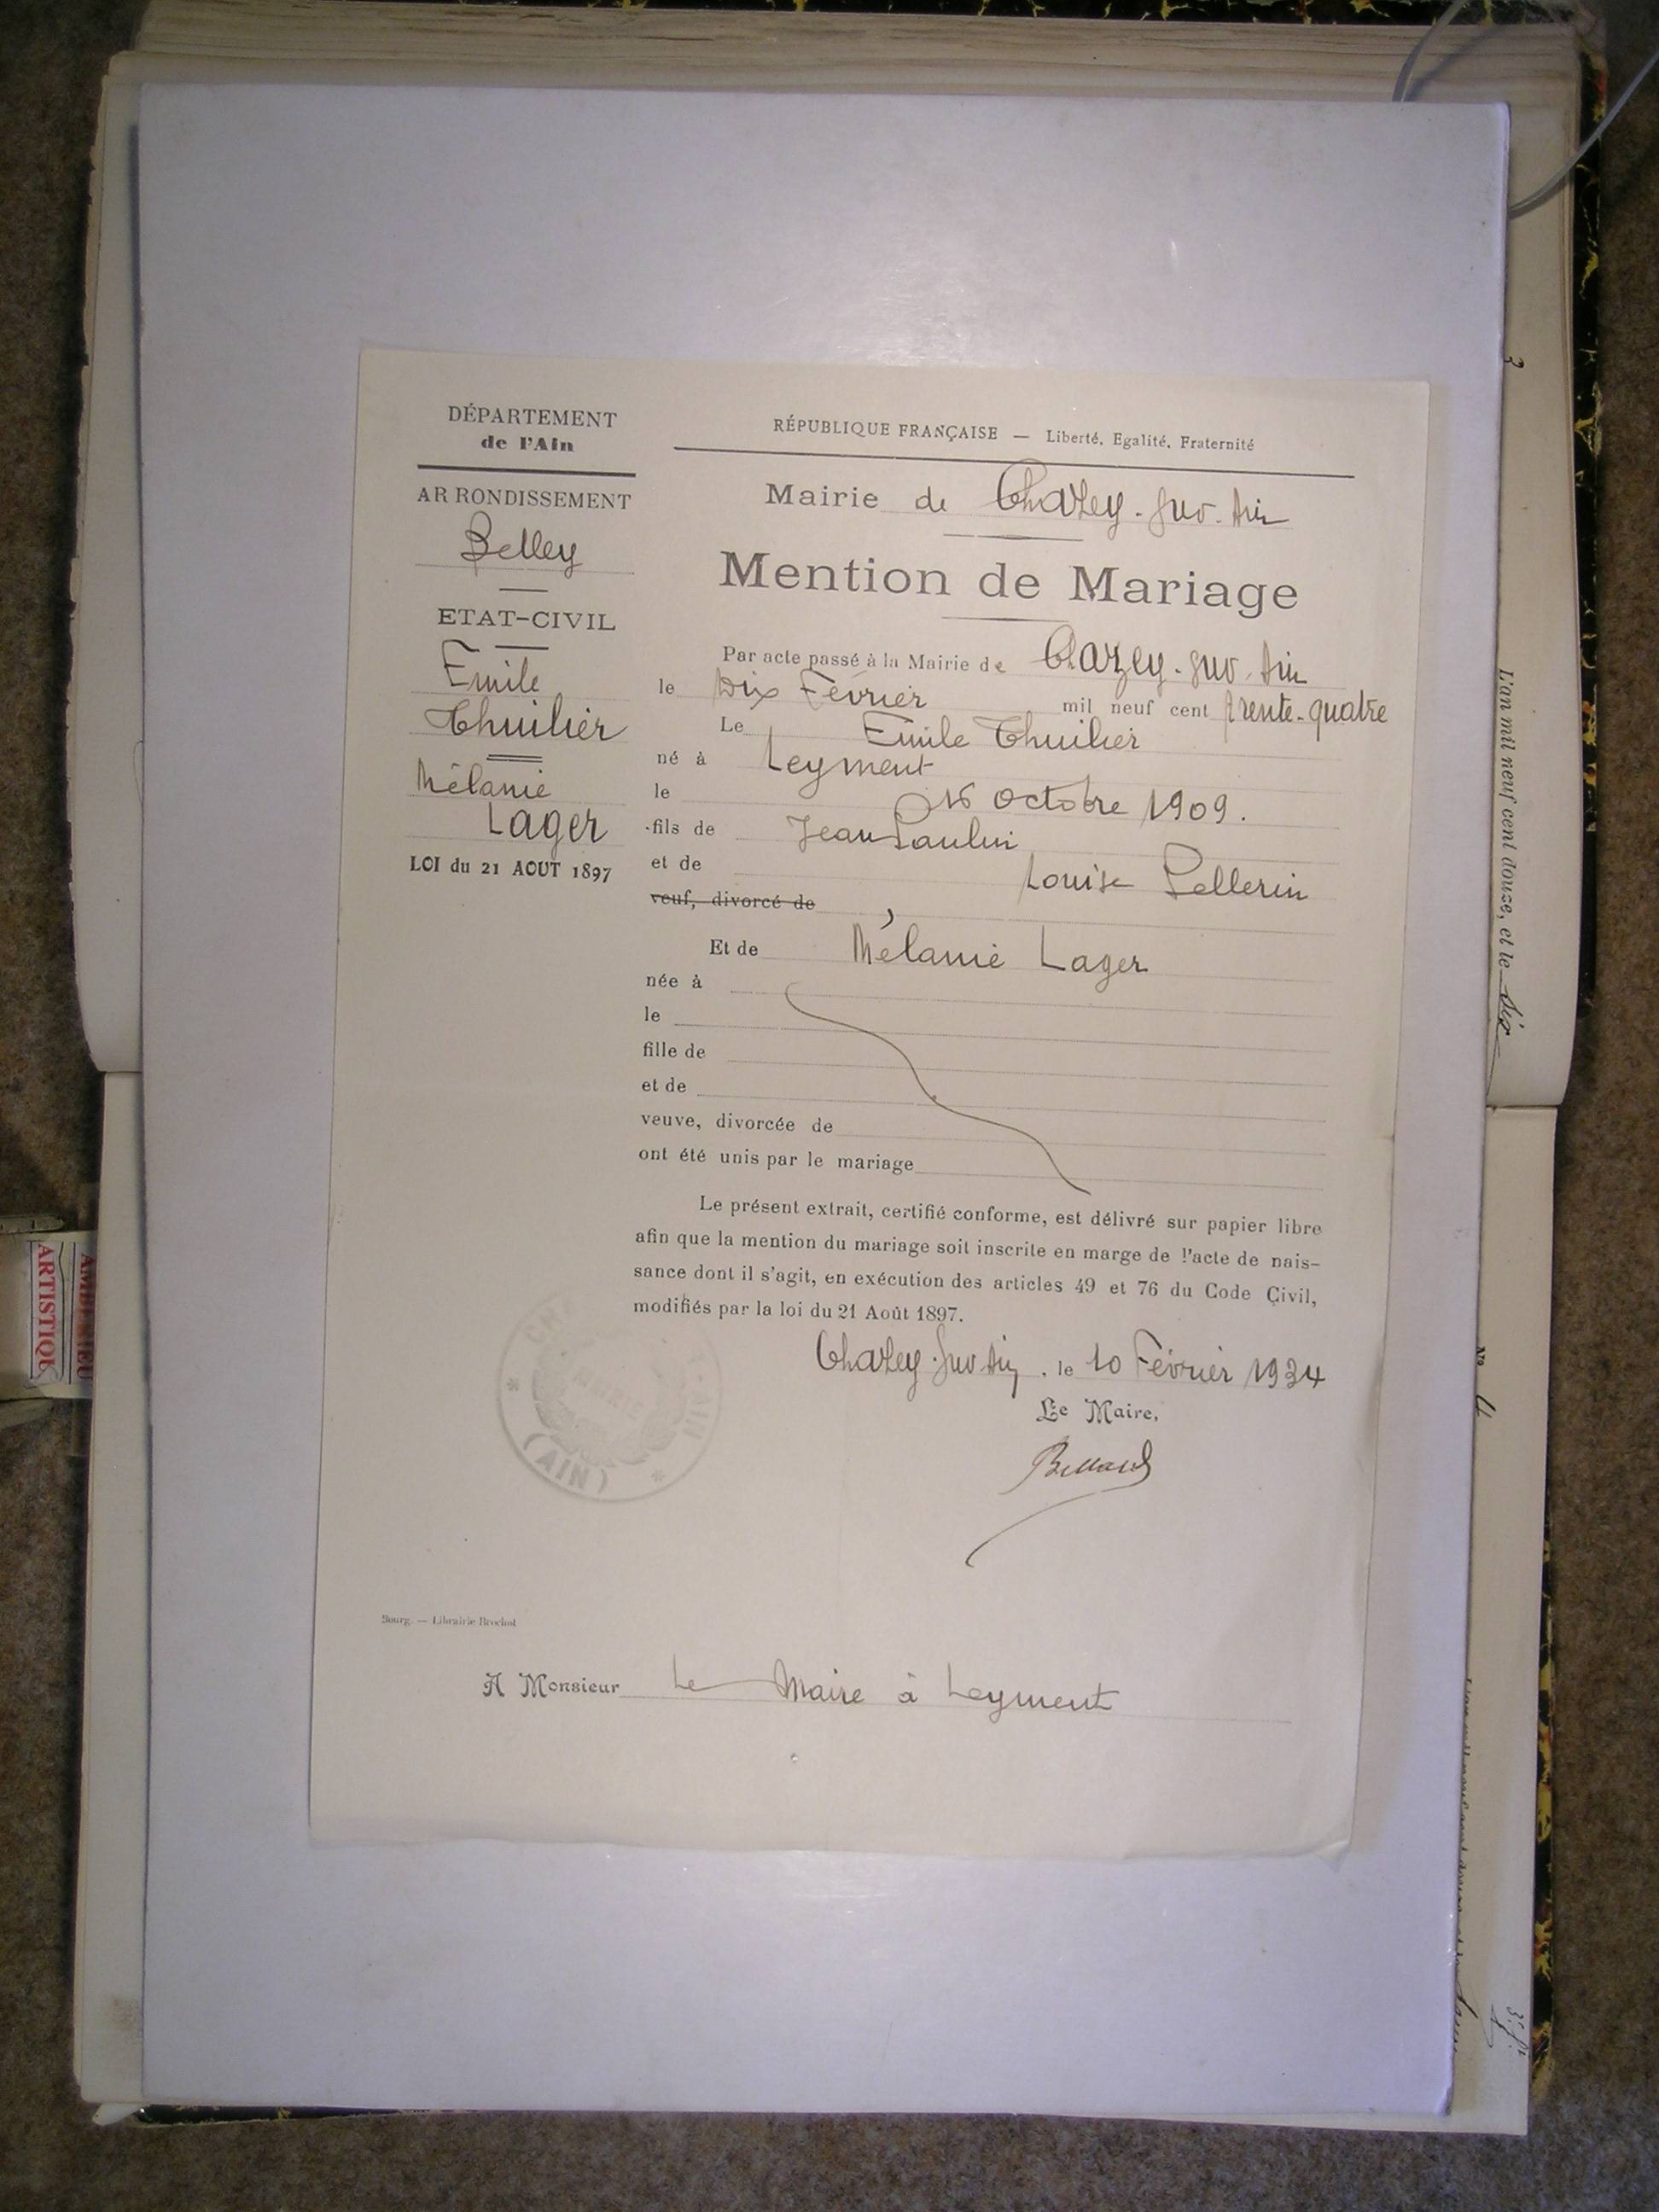 DÉPARTEMENT
de l'Ain
ARRONDISSEMENT
Belley
ETAT-CIVIL
Emile
Thuilier
Mélanie
Lager
LOI du 21 AOUT 1897
RÉPUBLIQUE FRANÇAISE — Liberté, Egalité, Fraternité
Mairie de Chazey-sur-Ain
Mention de Mariage
Par acte passé à la Mairie de Chazey-sur-Ain
le Dix Février mil neuf cent trente-quatre
Le Emile Thuilier
né à Leyment
le 16 Octobre 1909.
fils de Jean Paulin
et de Louise Pellerin
veuf, divorcé de
Et de Mélanie Lager
née à
le
fille de
et de
veuve, divorcée de
ont été unis par le mariage
Le présent extrait, certifié conforme, est délivré sur papier libre
afin que la mention du mariage soit inscrite en marge de l'acte de nais-
sance dont il s'agit, en exécution des articles 49 et 76 du Code Civil,
modifiés par la loi du 21 Août 1897.
Chazey-sur-Ain, le 10 Février 1934
Le Maire,
(AIN)
Bourg. — Librairie Brochot
A Monsieur Le Maire à Leyment
L'an mil neuf cent douze, et le dix
3
No 4
ARTISTIQU